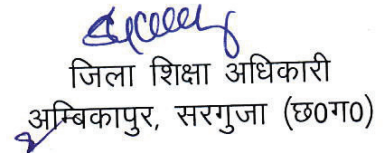 जिला शिक्षा अधिकारी
अम्बिकापुर, सरगुजा (छ0ग0)